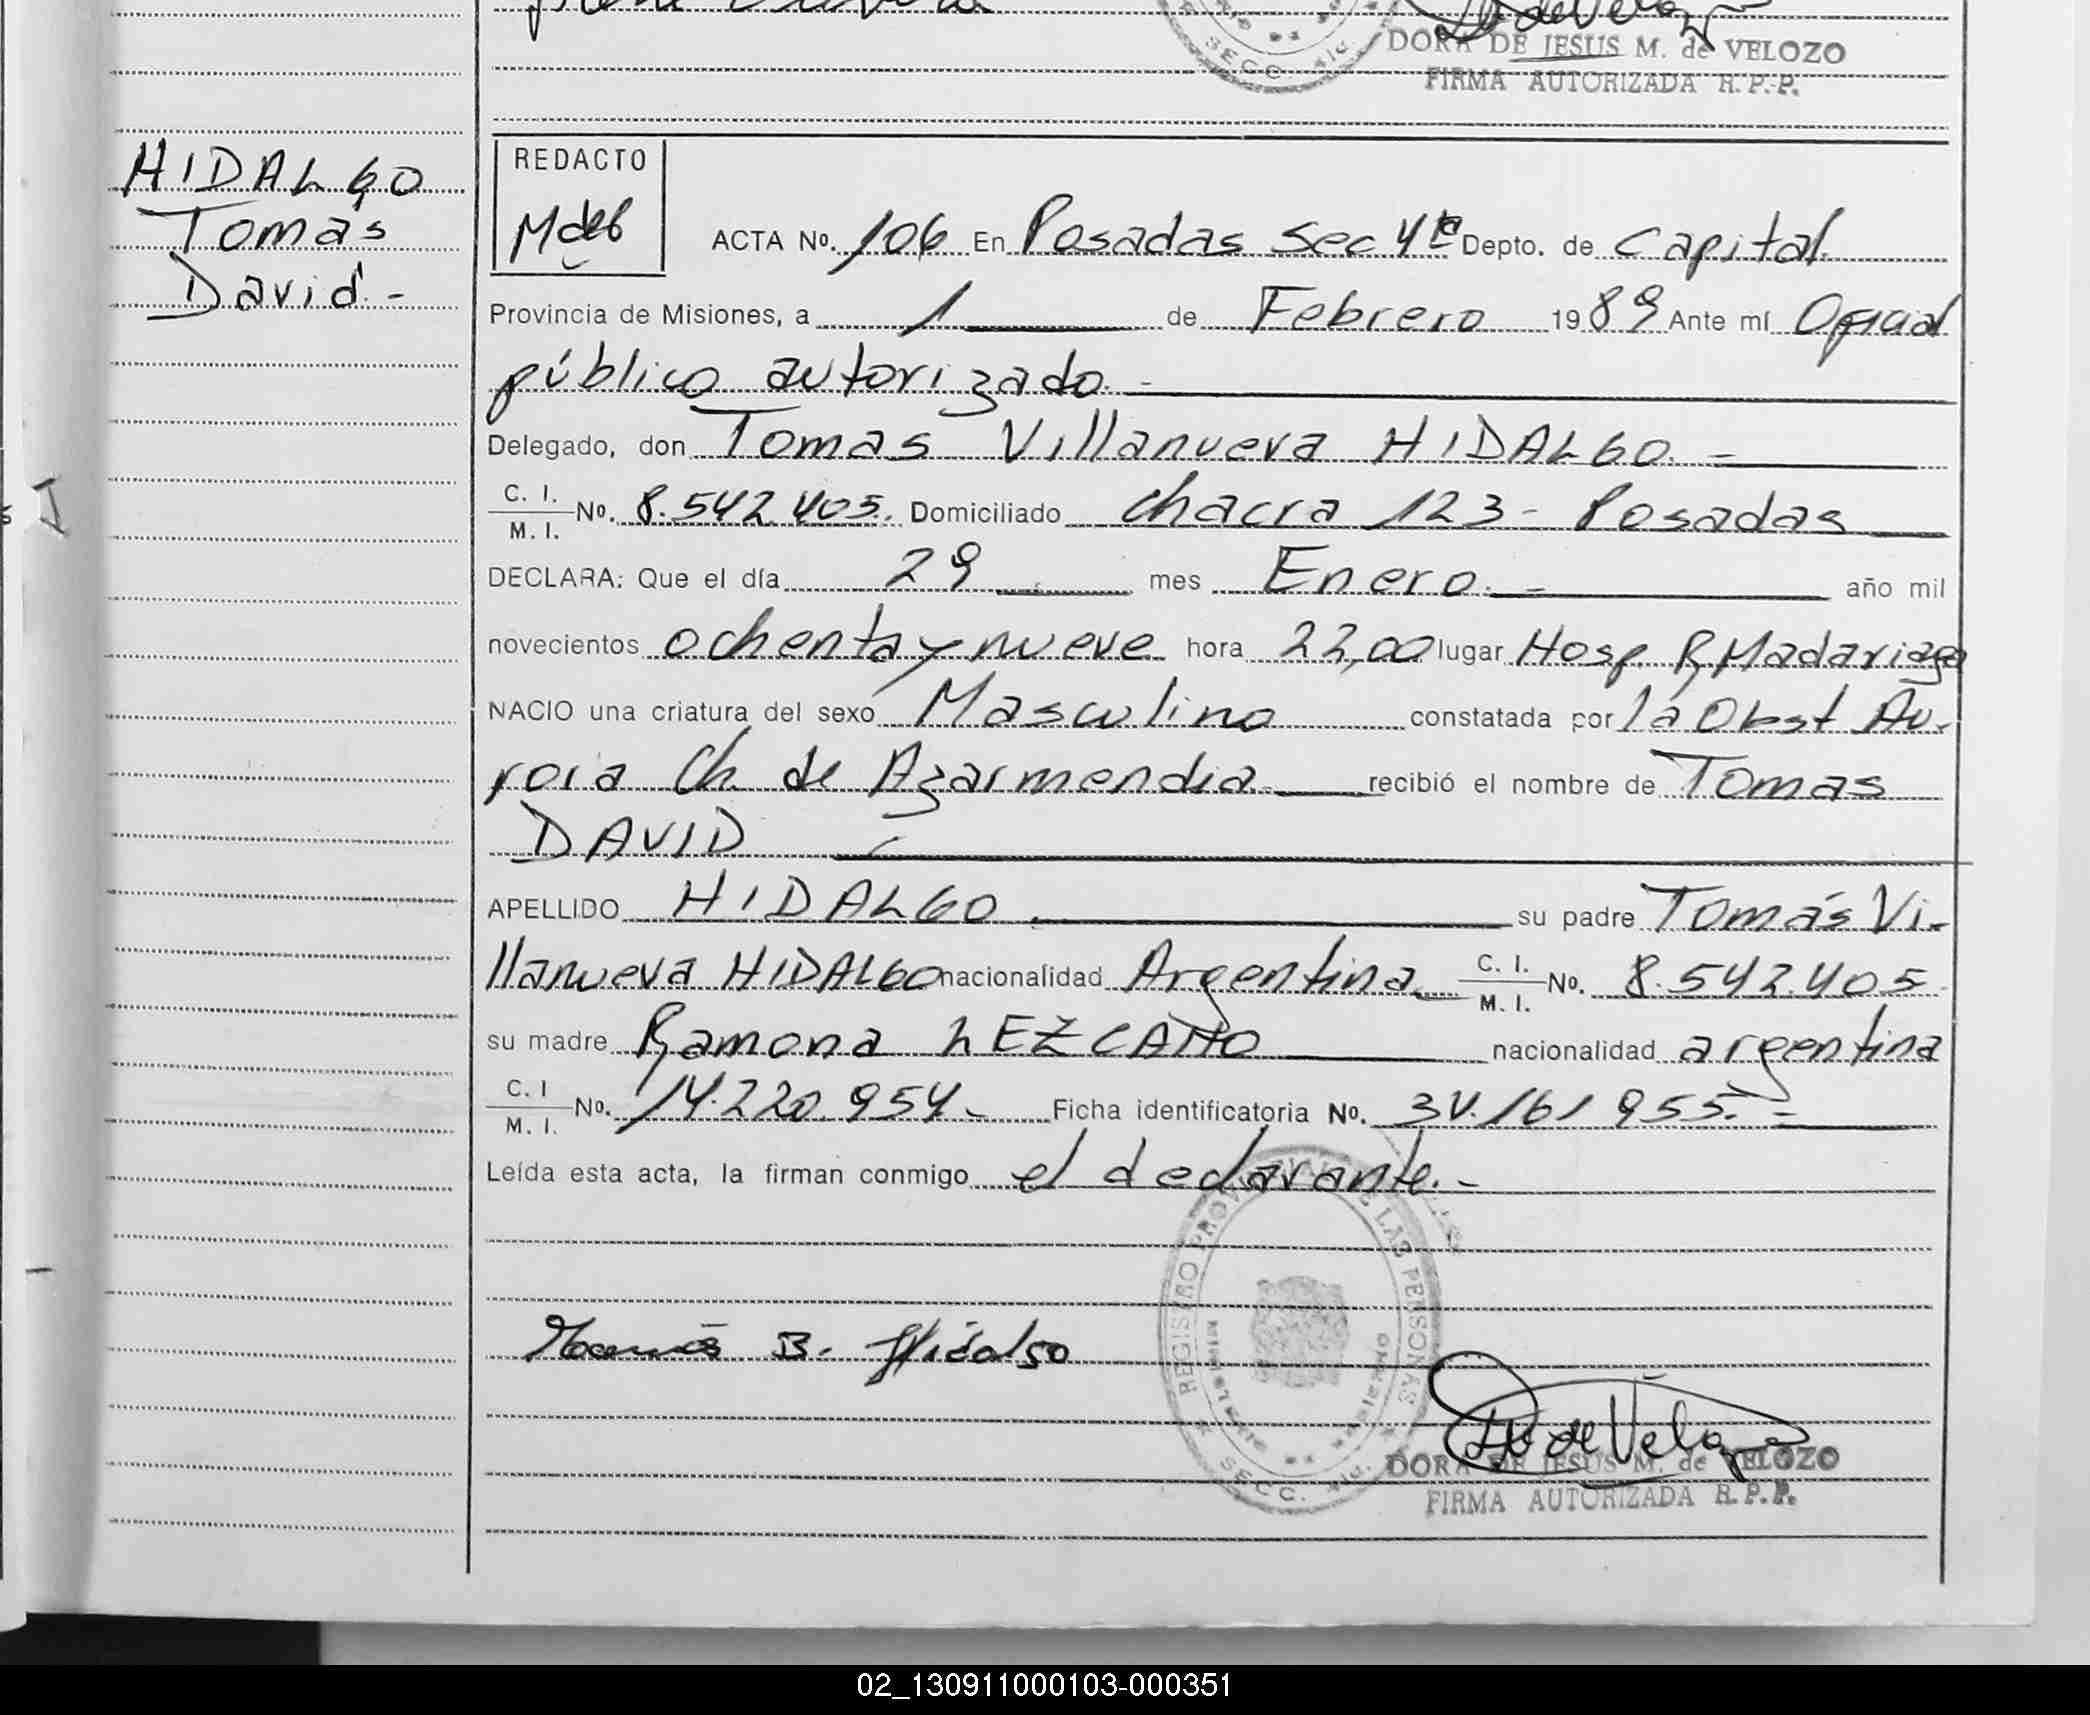 DORA DE JESUS M. de VELOZO
FIRMA AUTORIZADA R.P.P.
HIDALGO
Tomás
David.-
REDACTO
ACTA No. 106 En Posadas Sec 4ta Depto. de Capital.
Provincia de Misiones, a 1 de Febrero 1989 Ante mí Oficial
público autorizado.-
Delegado, don Tomas Villanueva HIDALGO.-
C. I. M. I. No. 8.542.405. Domiciliado chacra 123- Posadas
DECLARA: Que el día 29 mes Enero.- año mil
novecientos ochenta y nueve hora 22,00 lugar Hosp. R, Madariaga
NACIO una criatura del sexo Masculino constatada por la Obst Au-
rora Ch. de Azarmendia. recibió el nombre de Tomas
DAVID
APELLIDO HIDALGO. su padre Tomás Vi-
llanueva HIDALGO nacionalidad Argentina C. I. M. I. No. 8.542.405
su madre Ramona LEZCANO nacionalidad argentina
C. I M. I. No. 14.220.954.- Ficha identificatoria No. 34.161955.-
Leída esta acta, la firman conmigo el declarante.-
REGISTRO PROVINCIAL DE LAS PERSONAS
SECC. 4ta.
Tomás B. Hidalgo
DORA DE JESUS M. de VELOZO
FIRMA AUTORIZADA R.P.P.
02_130911000103-000351